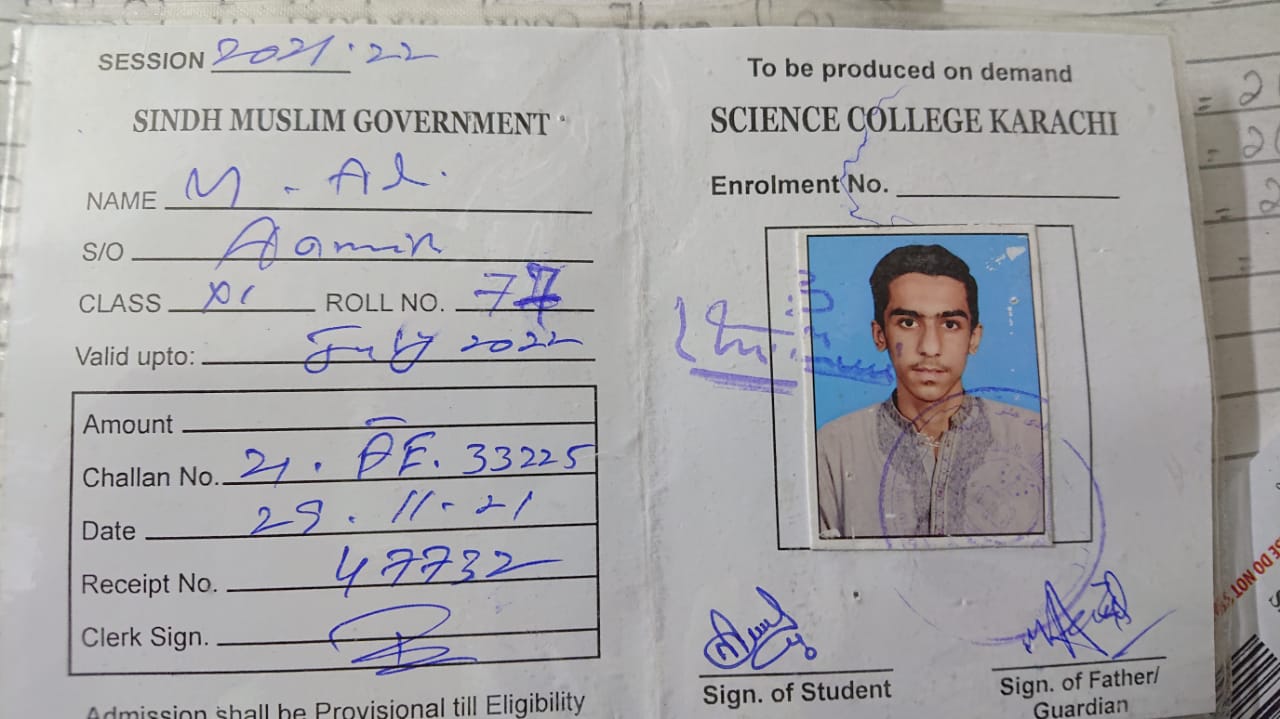 SESSION 2021.22
SINDH MUSLIM GOVERNMENT
NAME M. Al.
S/O Aamir
CLASS XI ROLL NO. 77
Valid upto: July 2022
Amount —
Challan No. 21. PE. 33225
Date 29.11.21
Receipt No. 47732
Clerk Sign.
Admission shall be Provisional till Eligibility
To be produced on demand
SCIENCE COLLEGE KARACHI
Enrolment No.
Sign. of Student
Sign. of Father/
Guardian
DO NOT